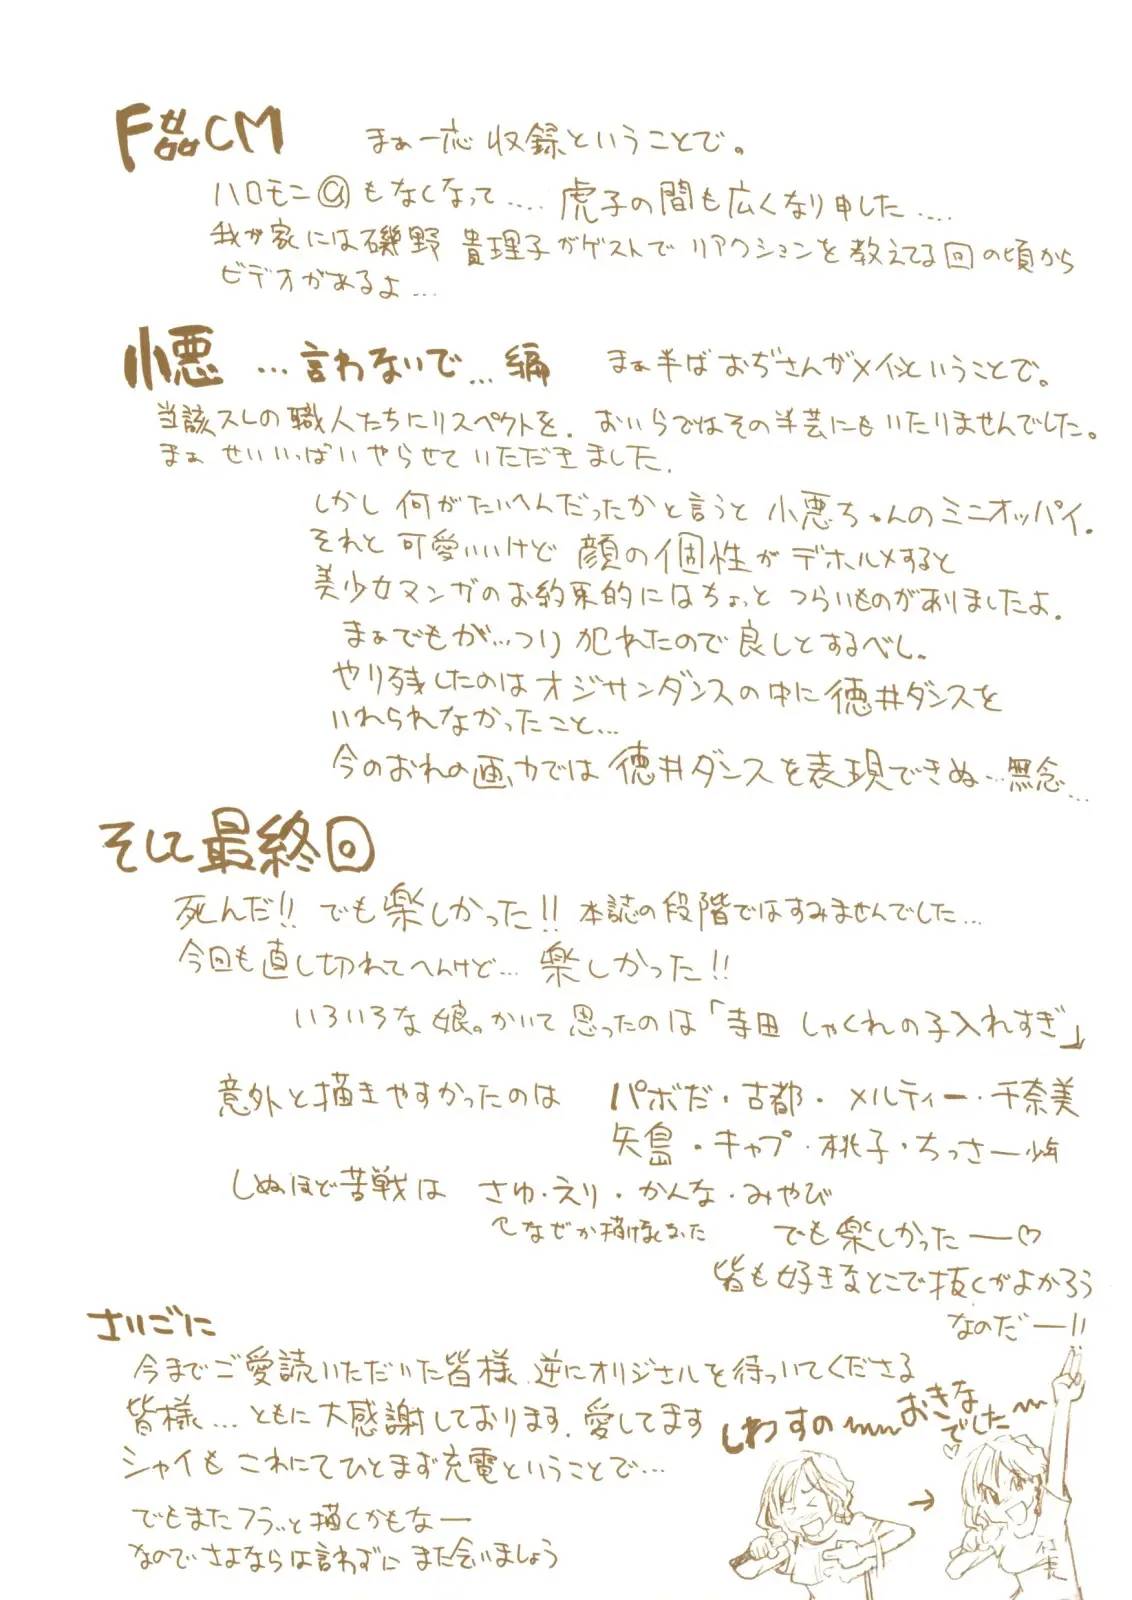 F磊CM まぁ一応収録ということで。
ハロモニ@もなくなって.... 虎子の間も広くなり申した....
我が家には磯野貴理子がゲストでリアクションを教えてる回の頃から
ビデオがあるよ...
小悪 ...言わないで...編 まぁ半ばおぢさんがメインということで。
当該スレの職人たちにリスペクトを. おいらではその半芸にもいたりませんでした。
まぁ せいいっぱいやらせていただきました.
しかし何がたいへんだったかと言うと 小悪ちゃんのミニオッパイ.
それと可愛いいけど 顔の個性がデホルメすると
美少女マンガのお約束的にはちょっとつらいものがありましたよ.
まぁでもが...つり 犯れたので良しとするべし.
やり残したのはオジサンダンスの中に徳井ダンスを
いれられなかったこと...
今のおれの画力では徳井ダンスを表現できぬ...無念...
そして最終回
死んだ!! でも楽しかった!! 本誌の段階ではすみませんでした...
今回も直し切れてへんけど... 楽しかった!!
いろいろな娘。かいて思ったのは「寺田 しゃくれの子入れすぎ」
意外と描きやすかったのは パボだ・古都・メルティー・千奈美
矢島・キャプ・桃子・ちっさー少年
しぬほど苦戦は さゆ・えり・かんな・みやび
なぜか描けなかった でも楽しかったー♡
皆も好きなとこで抜くがよかろう
なのだー!!
さいごに
今までご愛読いただいた皆様 逆にオリジナルを待っていてくださる
皆様...ともに大感謝しております. 愛してます
シャイもこれにてひとまず充電ということで...
でもまたフラッと描くかもなー
なのでさよならは言わずにまた会いましょう
しわすの
おきな
でした
→